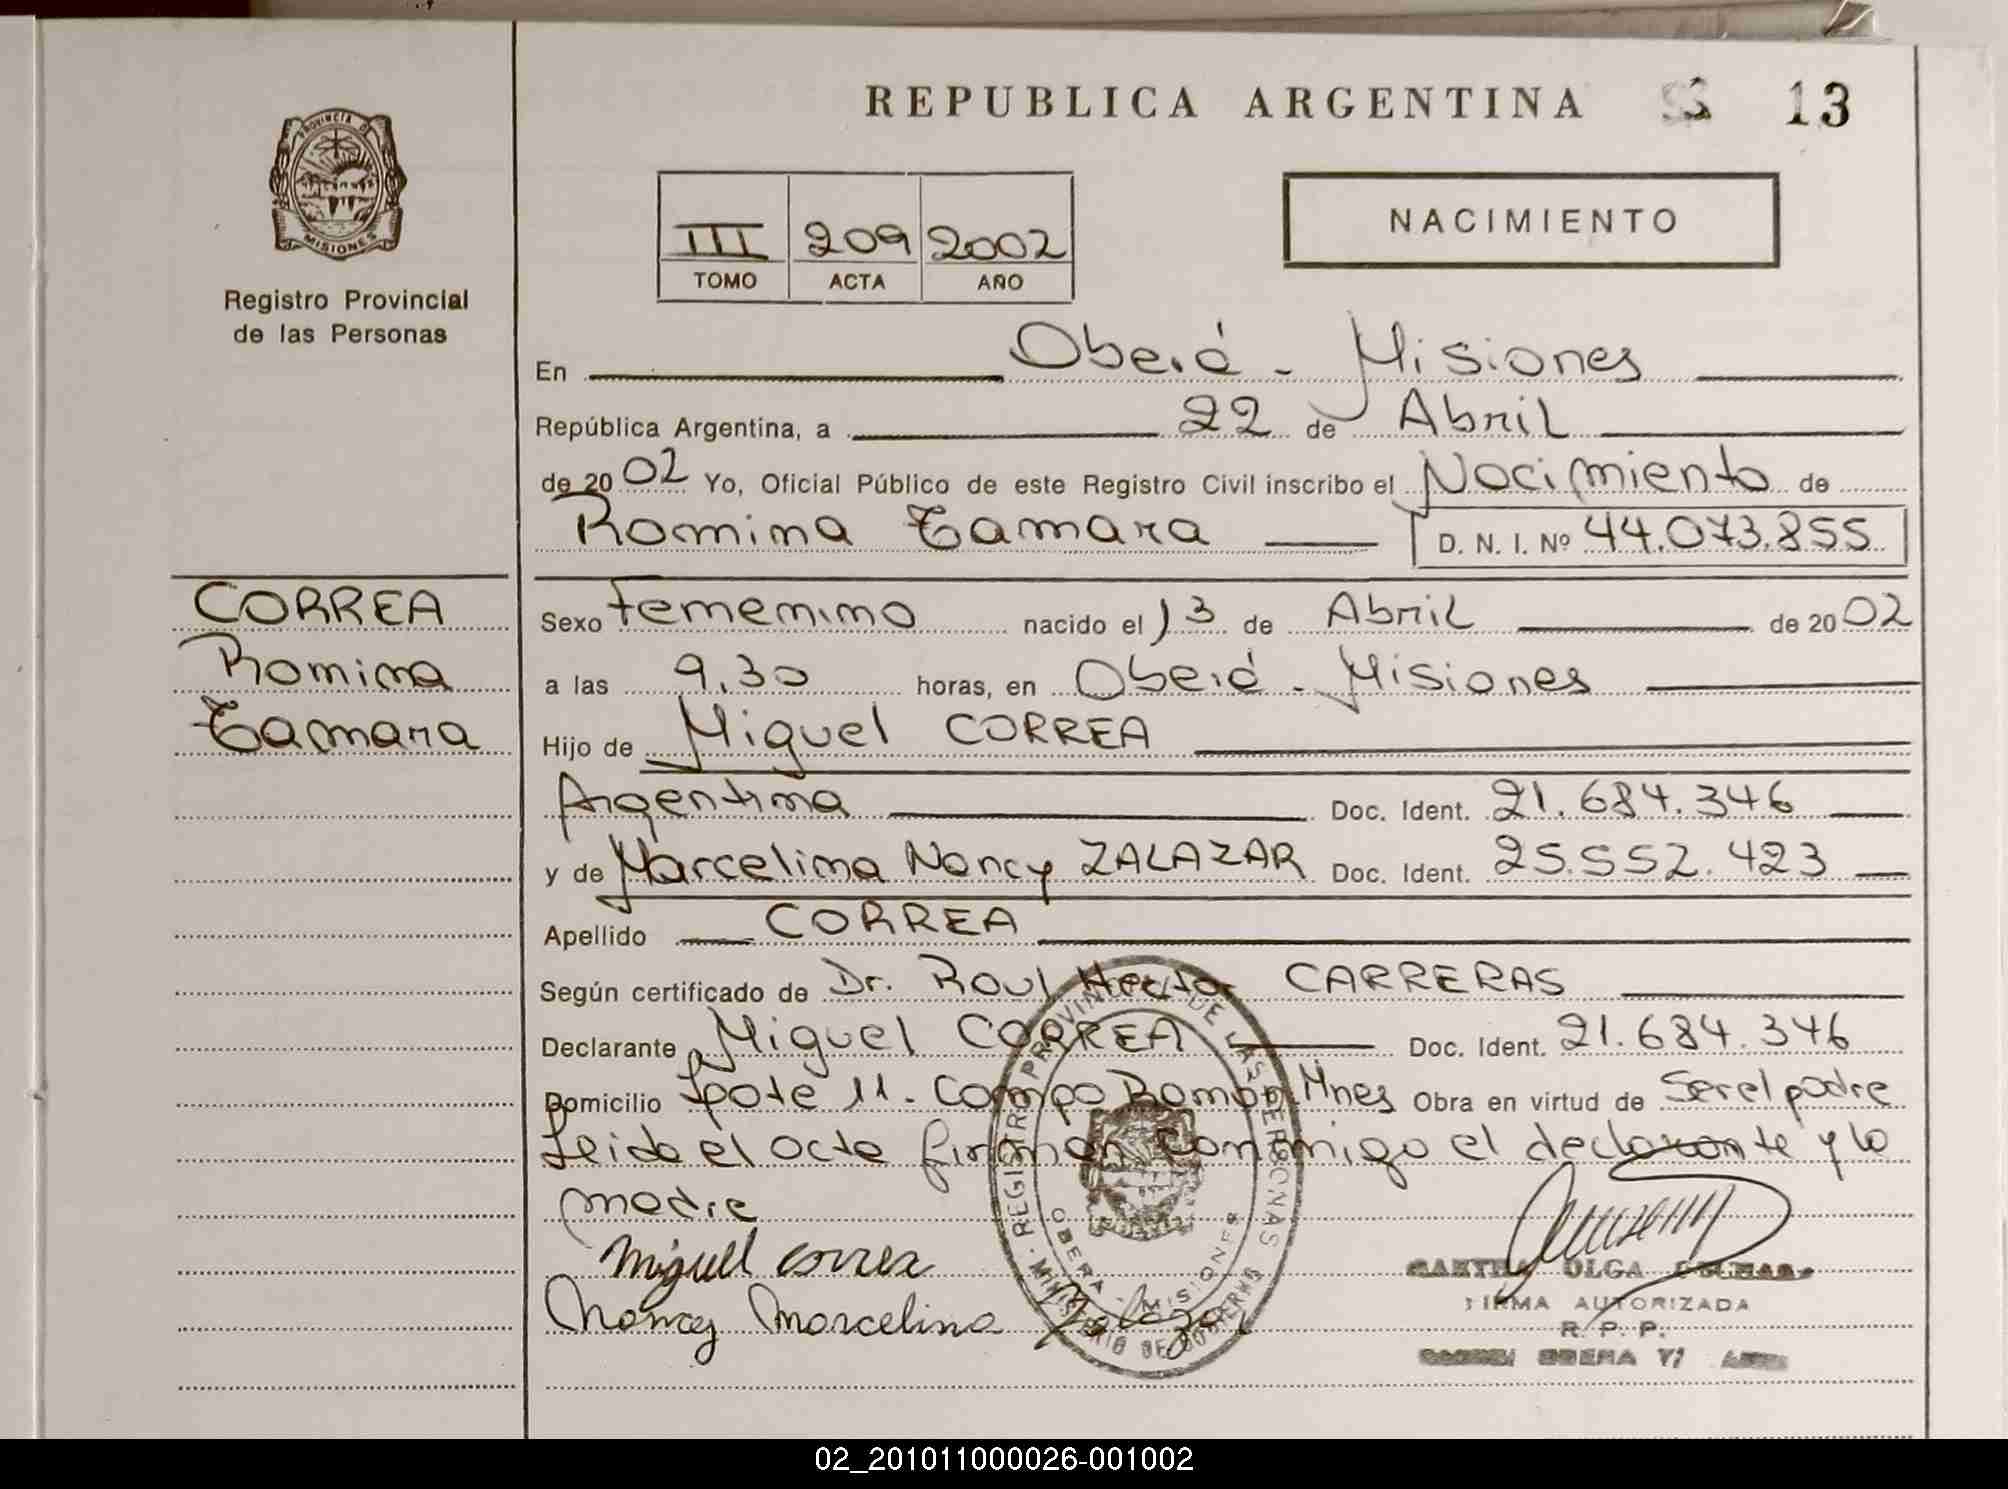 REPUBLICA ARGENTINA 13
PROVINCIA DE
MISIONES
Registro Provincial
de las Personas
NACIMIENTO
III 209 2002
TOMO ACTA AÑO
En Oberá - Misiones
República Argentina, a 22 de Abril
de 2002 Yo, Oficial Público de este Registro Civil inscribo el Nacimiento de
Romina Tamara D. N. I. Nº 44.073.855
CORREA
Romina
Tamara
Sexo Femenino nacido el 13 de Abril de 2002
a las 9.30 horas, en Oberá - Misiones
Hijo de Miguel CORREA
Argentina Doc. Ident. 21.684.346
y de Marcelina Nancy ZALAZAR Doc. Ident. 25.552.423
Apellido CORREA
Según certificado de Dr. Raul Hector CARRERAS
Declarante Miguel CORREA Doc. Ident. 21.684.346
Domicilio Lote 11 - Campo Ramon Mnes Obra en virtud de Ser el padre
Leida el acta firman conmigo el declarante y la
madre
Miguel Correa
Nancy Marcelina Zalazar
REGISTRO PROVINCIAL DE LAS PERSONAS
OBERA - MISIONES
MINISTERIO DE GOBIERNO
OLGA
FIRMA AUTORIZADA
R. P. P.
02_201011000026-001002